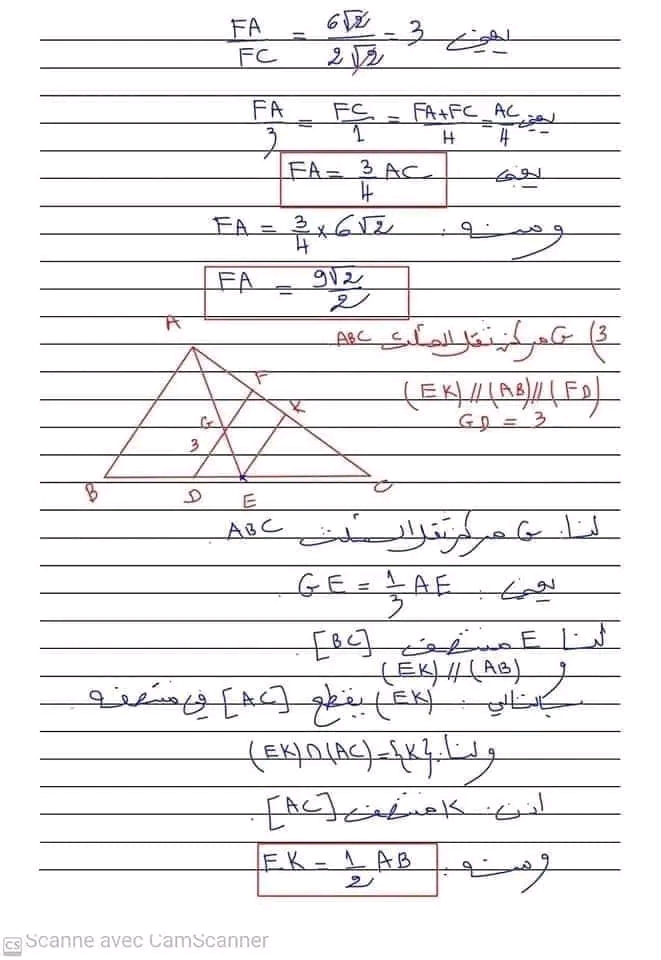 يعني FA/FC = 6√2/2√2 = 3
يعني FA/3 = FC/1 = FA+FC/4 = AC/4
يعني FA = 3/4 AC
ومنه : FA = 3/4 × 6√2
FA = 9√2/2
3) G مركز ثقل المثلث ABC
(EK) // (AB) // (FD)
GD = 3
A
F
K
G
3
B
D
E
C
لنا : G مركز ثقل المثلث ABC
يعني : GE = 1/3 AE
لنا E منتصف [BC]
و (EK) // (AB)
بالتالي : (EK) يقطع [AC] في منتصفه .
ولنا : (EK)∩(AC)={K}
اذن : K منتصف [AC] .
ومنه : EK = 1/2 AB
CS Scanné avec CamScanner